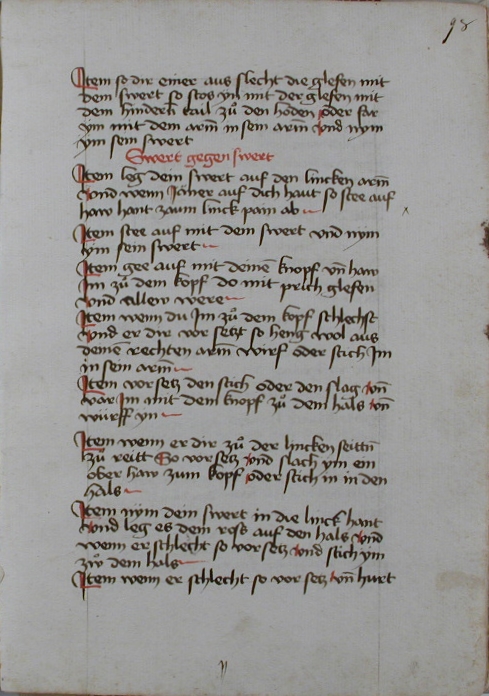 98
Item so dir einer aus slecht die glefen mit
dem swert so stos yn mit der glefen mit
dem hindern tail zů den hoden oder far
ym mit dem arm in sein arm vnd nym
ym sein swert
Swert gegen swert
Item leg dein swert auf den lincken arm
vnd wenn Jener auf dich haut so stee auf
haw hant zaum linck pain ab
Item stee auf mit dem swert vnd nym
ym sein swert
Item gee auf mit deinē knopf vñ haw
Im zů dem kopf do mit prich glefen
vnd allew were
Item wenn du Im zů dem kopf schlechst
vnd er dir vor setzt so heng wol aus
deinē rechten arm wirf oder stich Im
in sein arm
Item vorsetz den stich oder den slag vñ
var Im mit dem knopf zů dem hals vñ
würff yn
Item wenn er dir zů der lincken seittñ
zů reitt So vorsetz vnd slach ym ein
ober haw zum kopf oder stich in in den
hals
Item nym dein swert in die linck hant
vnd leg es dem ross auf den hals vnd
wenn er schlecht so vorsetz vnd stich ym
zw dem hals
Item wenn er schlecht so vor setz vñ hurt